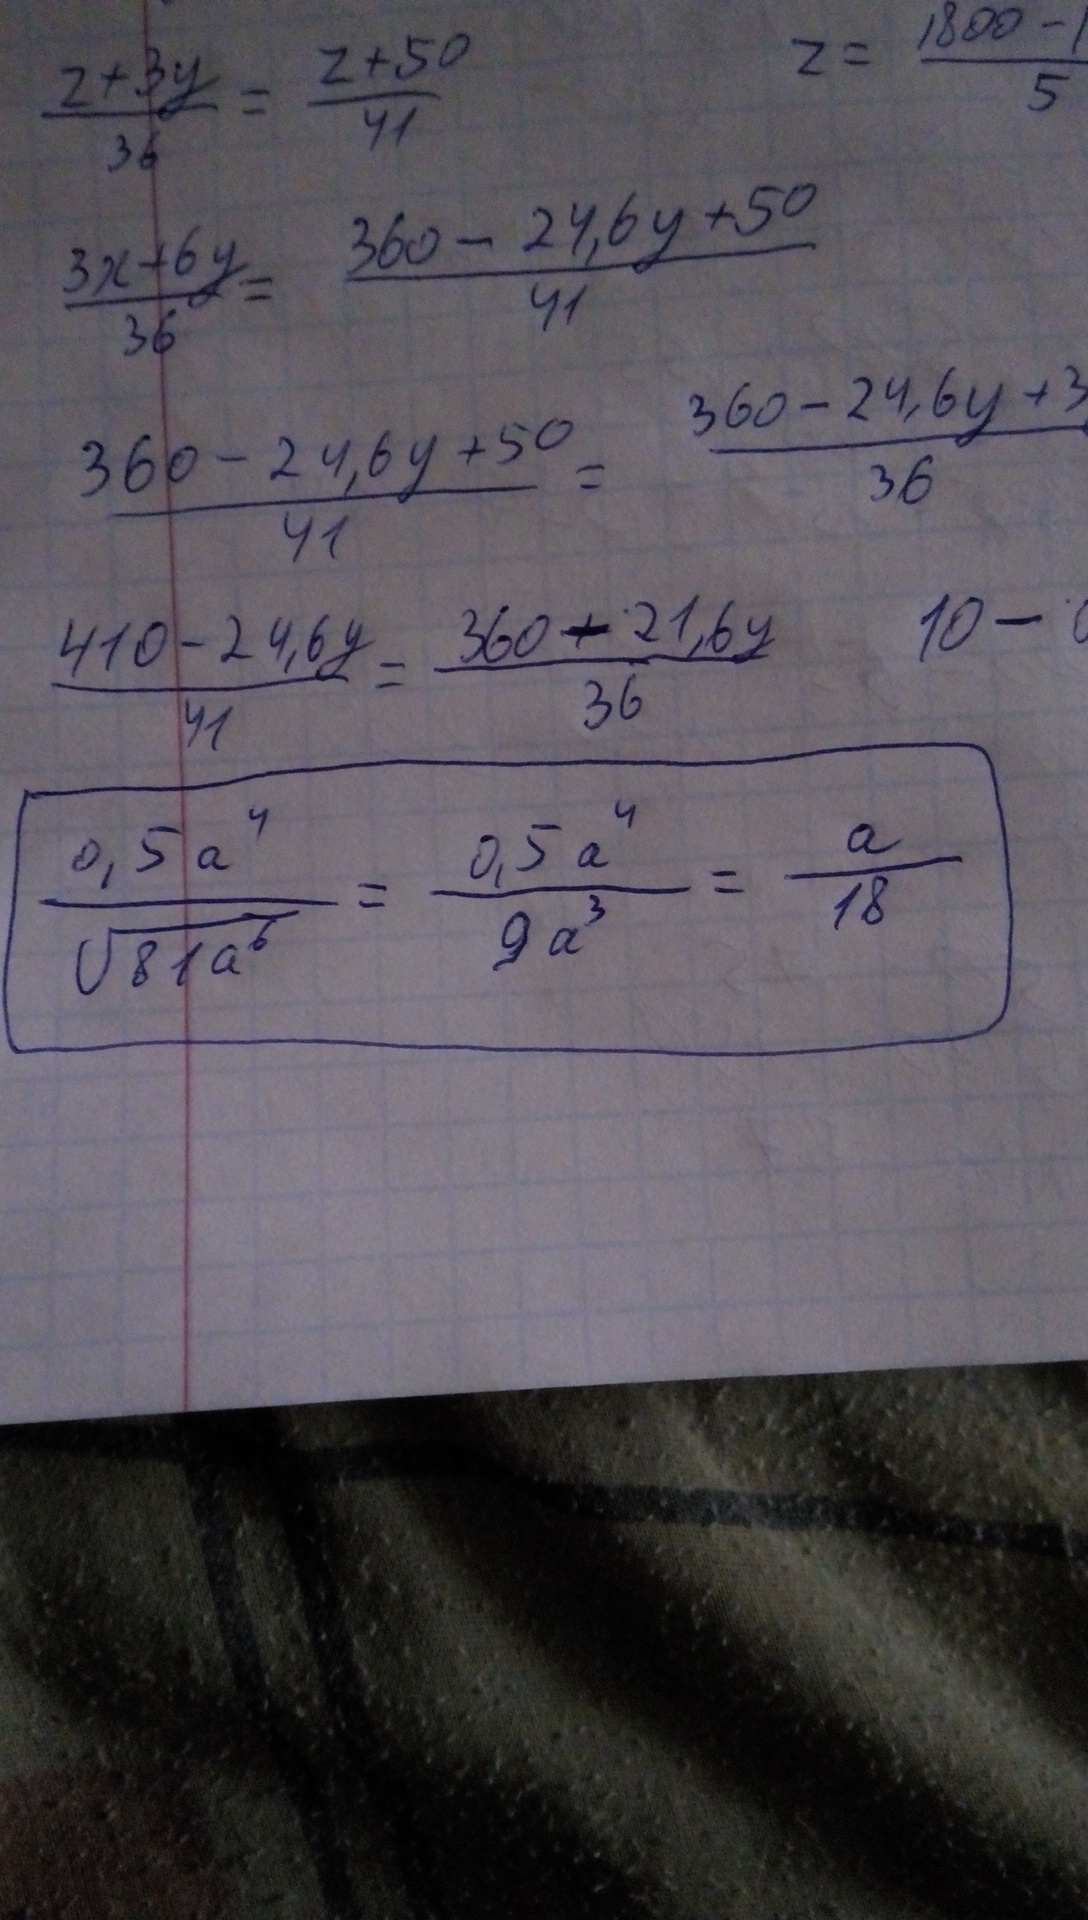 (z+3y)/36 = (z+50)/41 z = (1800-1)/5
(3x+6y)/36 = (360-24,6y+50)/41
(360-24,6y+50)/41 = (360-24,6y+3)/36
(410-24,6y)/41 = (360-21,6y)/36 10-
0,5a⁴/√(81a⁶) = 0,5a⁴/9a³ = a/18